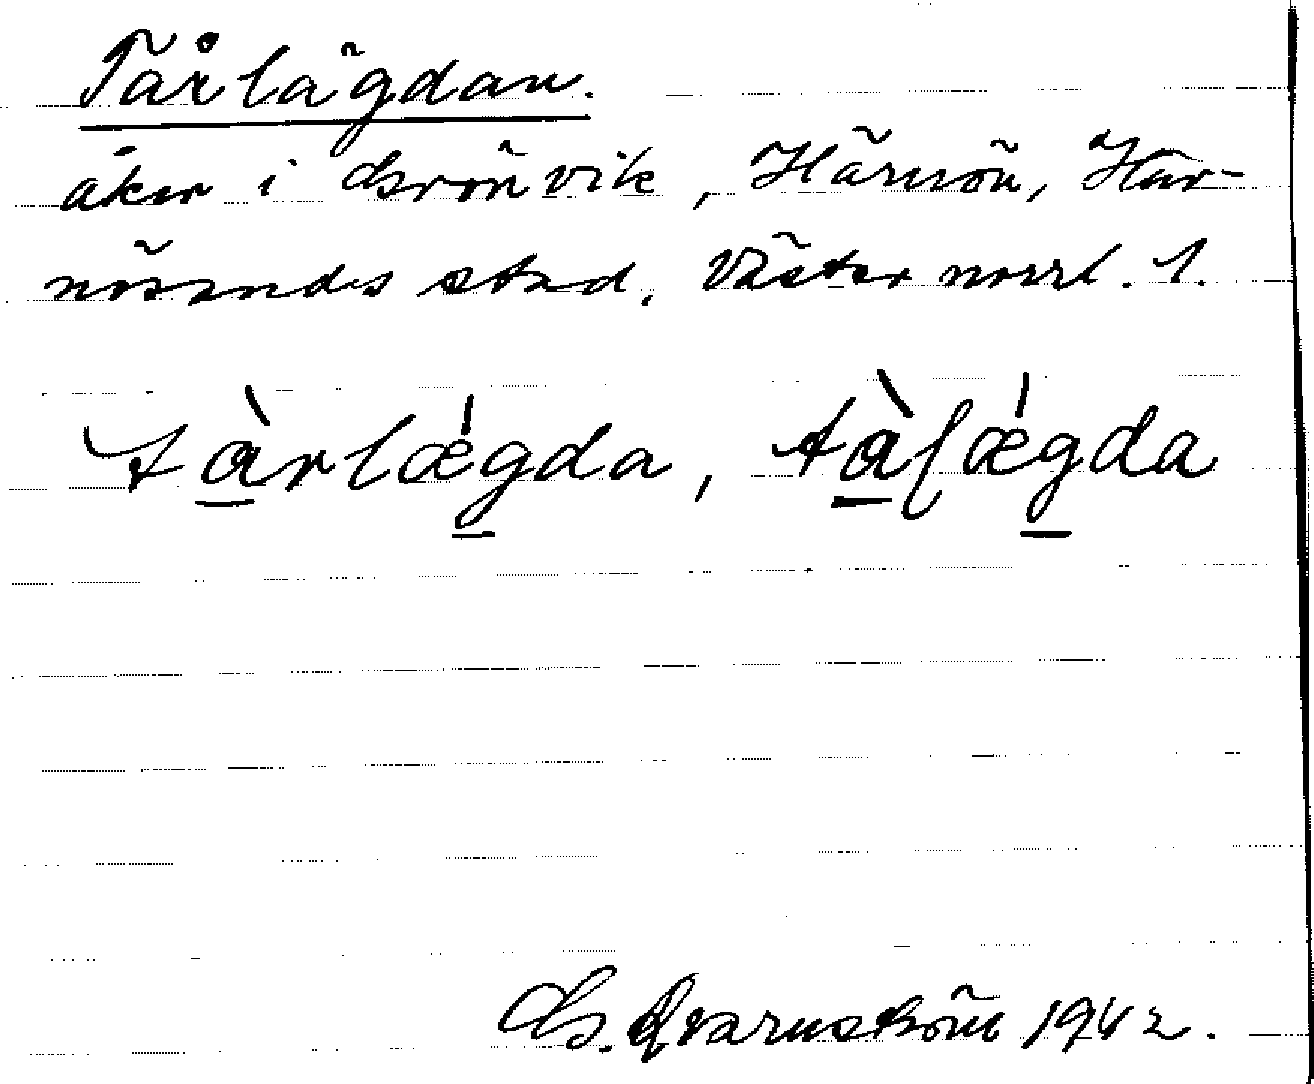 Tårlägdan.
åker i Grönvik, Härnön, Här-
nösands stad. Västernorrl. l.
tàrlǽgda, tàlǽgda
G. Qvarnström 1942.